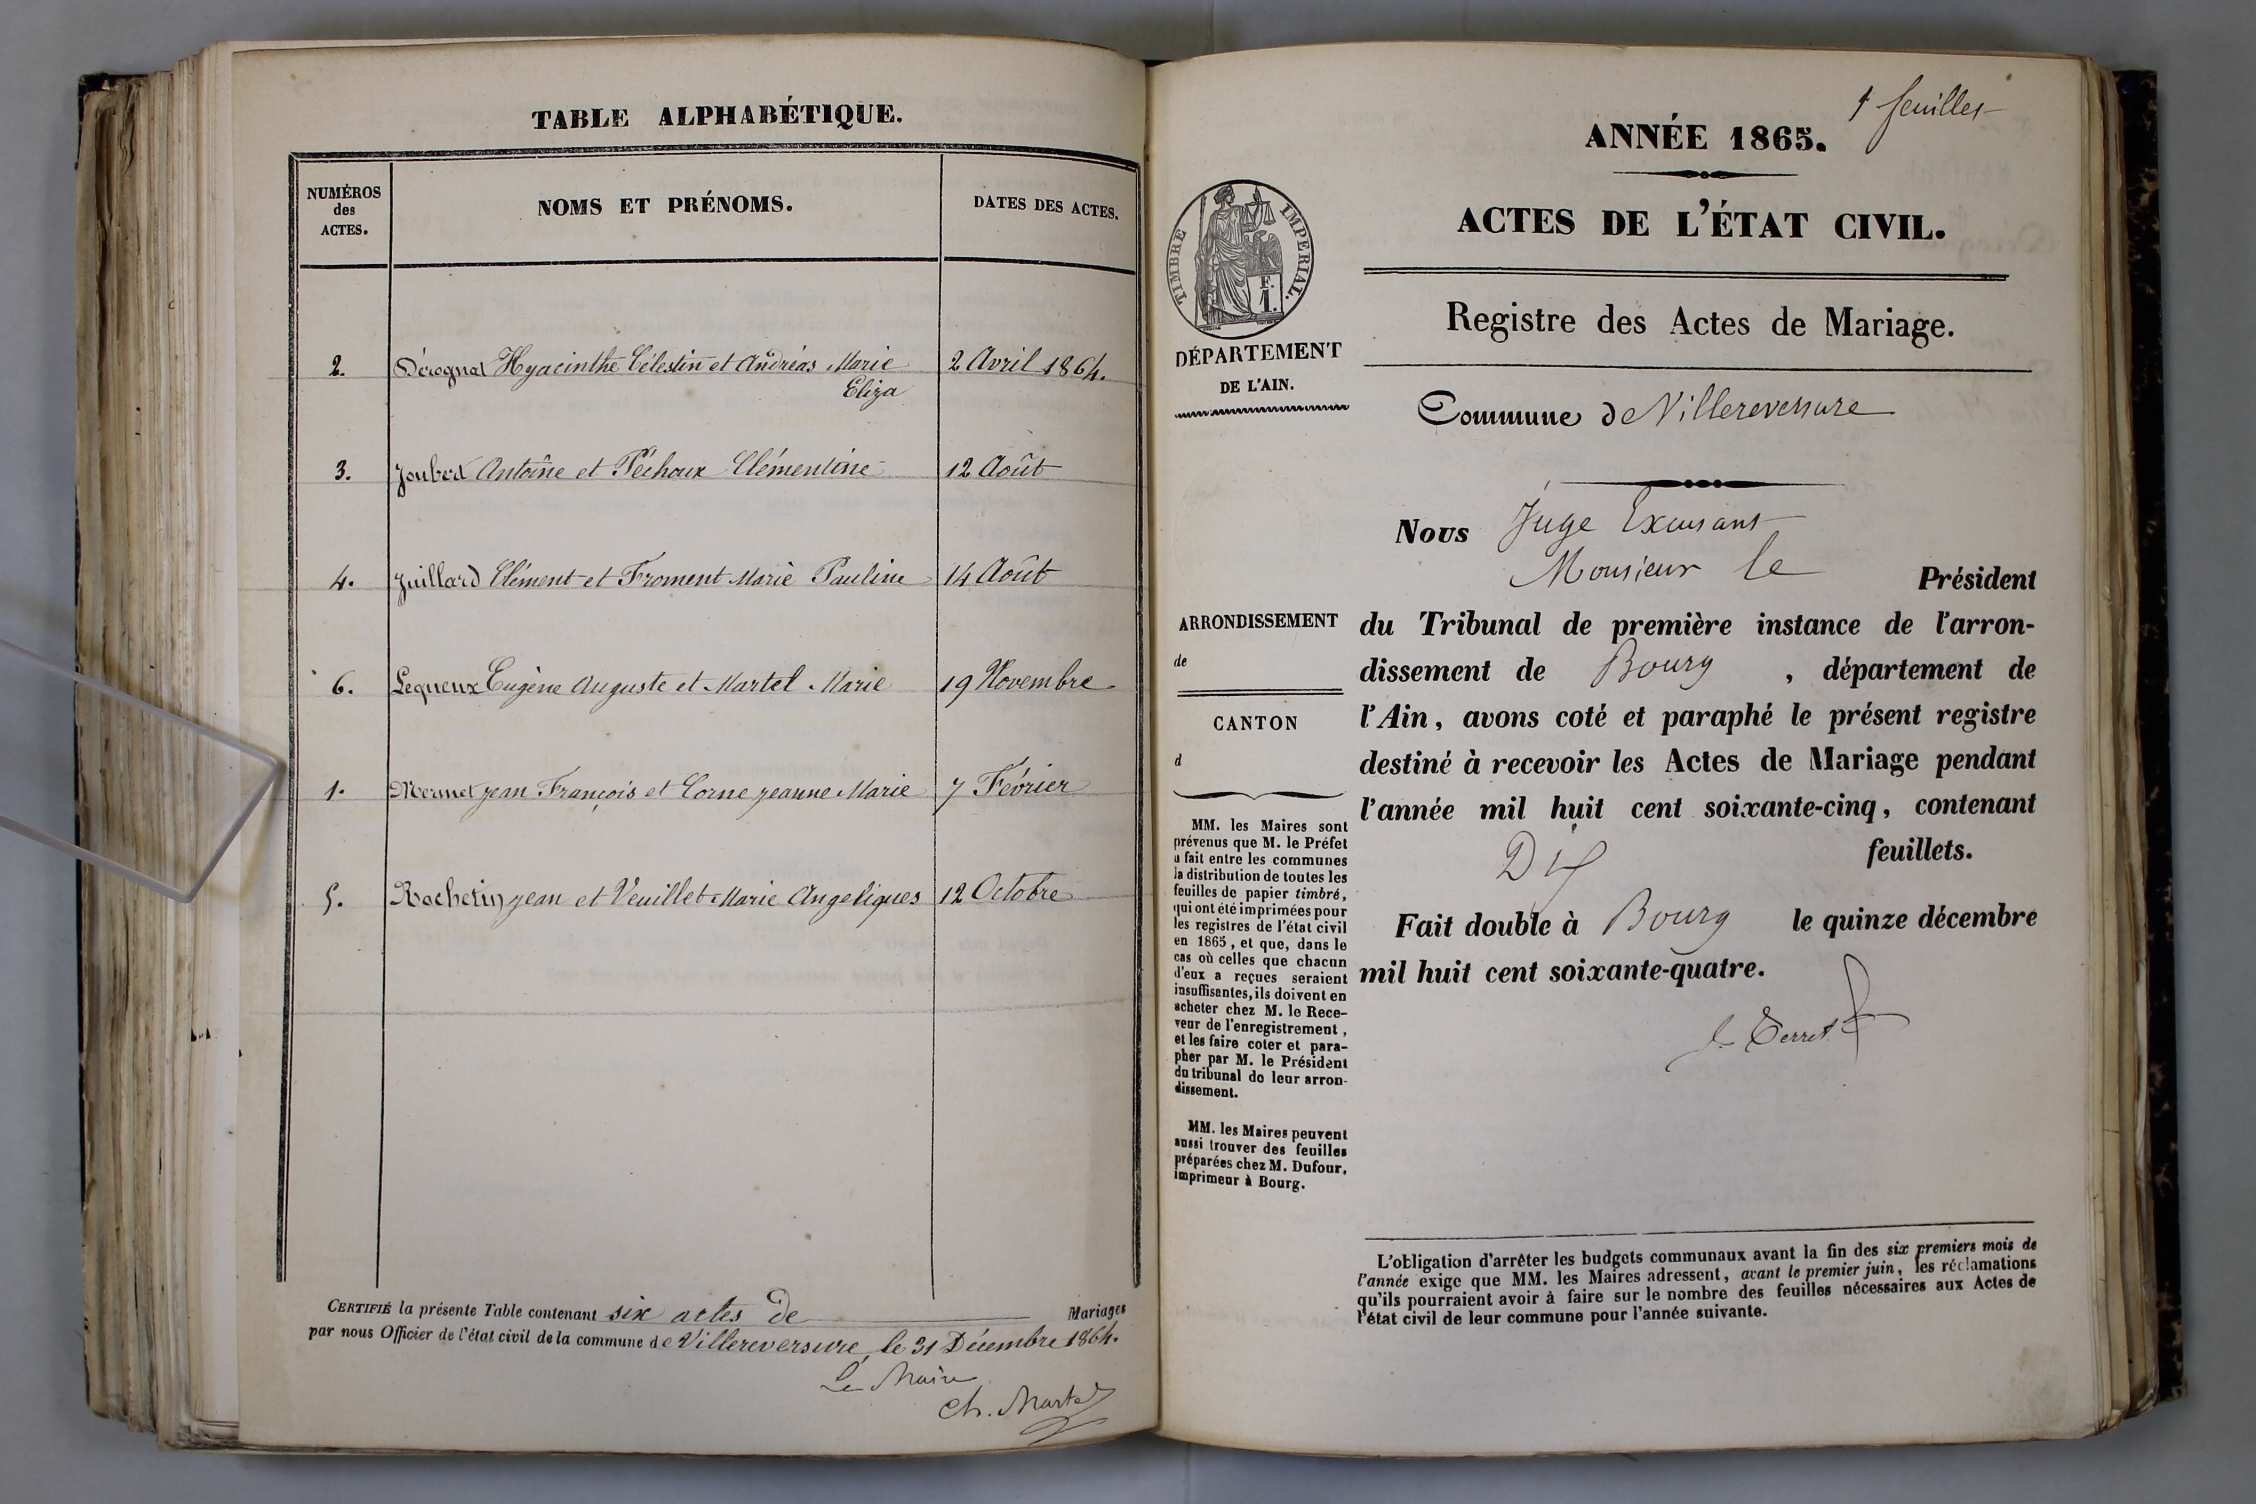 TABLE ALPHABÉTIQUE.
NUMÉROS
des
ACTES.
NOMS ET PRÉNOMS.
DATES DES ACTES.
2. Dérognat Hyacinthe Célestin et Andréas Marie 2 Avril 1864.
Eliza
3. Joubert Antoine et Péchoux Clémentine 12 Août
4. Juillard Clément et Froment Marie Pauline 14 Août
6. Lequeux Eugène Auguste et Martel Marie 19 Novembre
1. Mermet jean François et Corne jeanne Marie 7 Février
5. Rochetin jean et Veuillet Marie Angeliques 12 Octobre
CERTIFIÉ la présente Table contenant six actes de Mariages
par nous Officier de l'état civil de la commune de Villereversure, le 31 Décembre 1864.
Le Maire
Ch. Martel
feuilles
ANNÉE 1865.
ACTES DE L'ÉTAT CIVIL.
TIMBRE IMPERIAL.
F.
1.
DÉPARTEMENT
DE L'AIN.
Registre des Actes de Mariage.
Commune de Villereversure
Nous Juge Excusant
Monsieur le Président
du Tribunal de première instance de l'arron-
dissement de Bourg, département de
l'Ain, avons coté et paraphé le présent registre
destiné à recevoir les Actes de Mariage pendant
l'année mil huit cent soixante-cinq, contenant
Dix feuillets.
Fait double à Bourg le quinze décembre
mil huit cent soixante-quatre.
ARRONDISSEMENT
de
CANTON
d
MM. les Maires sont
prévenus que M. le Préfet
a fait entre les communes
la distribution de toutes les
feuilles de papier timbré,
qui ont été imprimées pour
les registres de l'état civil
en 1865, et que, dans le
cas où celles que chacun
d'eux a reçues seraient
insuffisantes, ils doivent en
acheter chez M. le Rece-
veur de l'enregistrement,
et les faire coter et para-
pher par M. le Président
du tribunal de leur arron-
dissement.
MM. les Maires peuvent
aussi trouver des feuilles
préparées chez M. Dufour,
imprimeur à Bourg.
L'obligation d'arrêter les budgets communaux avant la fin des six premiers mois de
l'année exige que MM. les Maires adressent, avant le premier juin, les réclamations
qu'ils pourraient avoir à faire sur le nombre des feuilles nécessaires aux Actes de
l'état civil de leur commune pour l'année suivante.